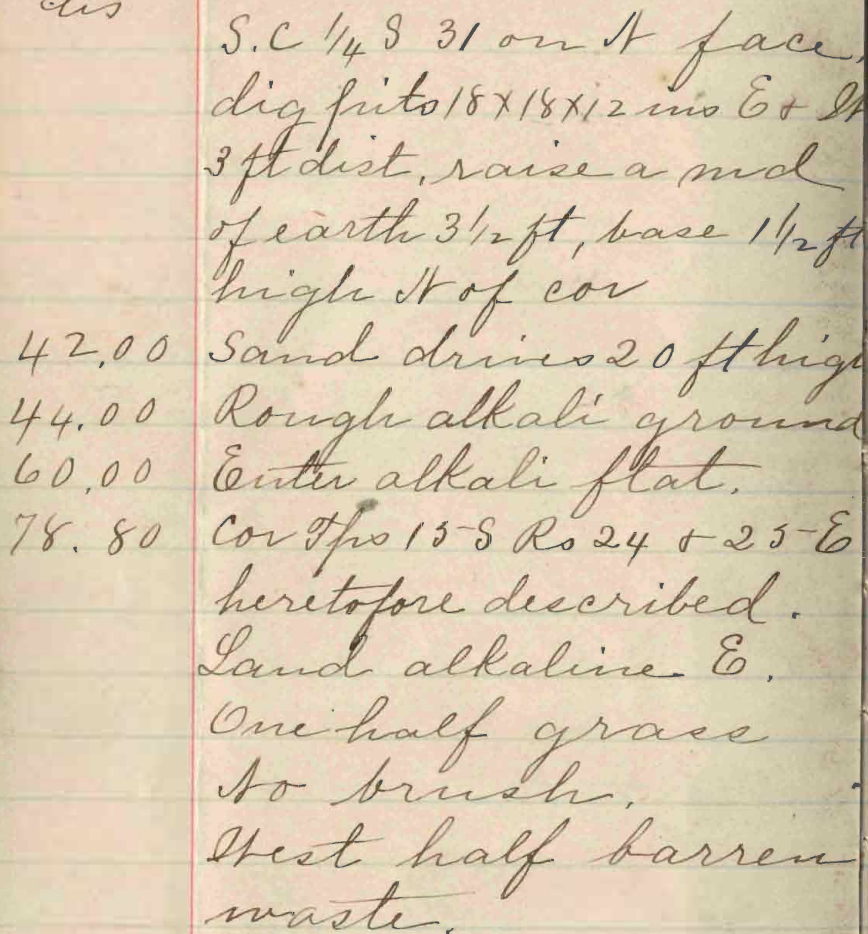 S.C 1/4 S 31 on N face,
dig pits 18x18x12 ins E & W
3 ft dist, raise a md
of earth 3 1/2 ft, base 1 1/2 ft
high N of cor
42.00 Sand drives 20 ft high
44.00 Rough alkali ground
60.00 Enter alkali flat.
78.80 Cor Tps 15 S Rs 24 & 25 E
heretofore described.
Land alkaline E.
One half grass
No brush.
West half barren
waste.